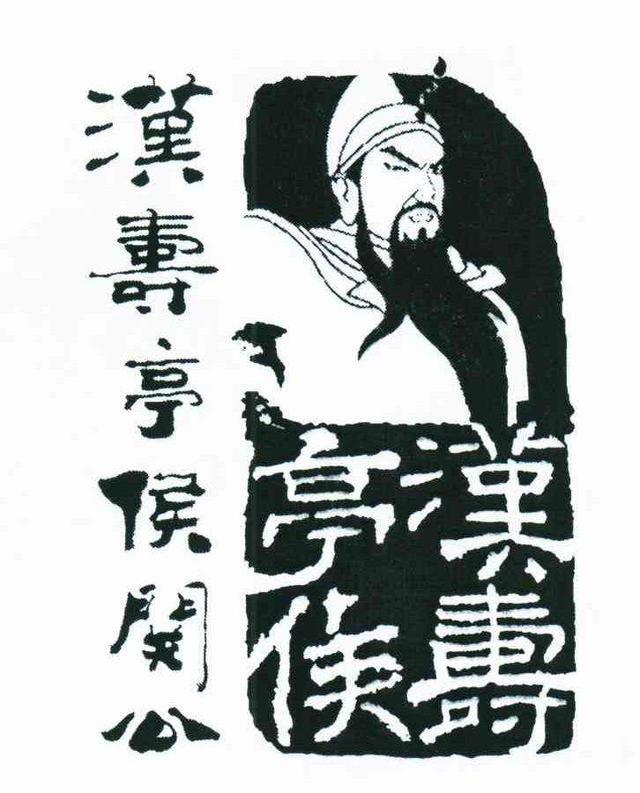 漢壽亭侯関公
漢壽
亭侯